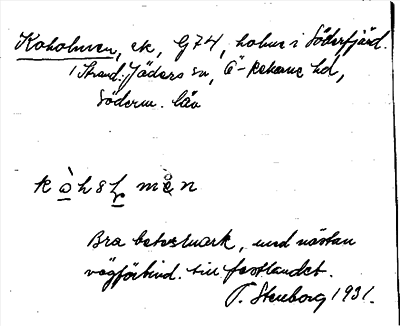 Koholmen, ek, G74, holme i Söderfjärd.
i Strand. Jäders sn, Ö-Rekarne hd,
Söderm. län
k ò h s l m e n
Bra betesmark, med nästan
vägförbind. till fastlandet.
T. Stenborg 1931.